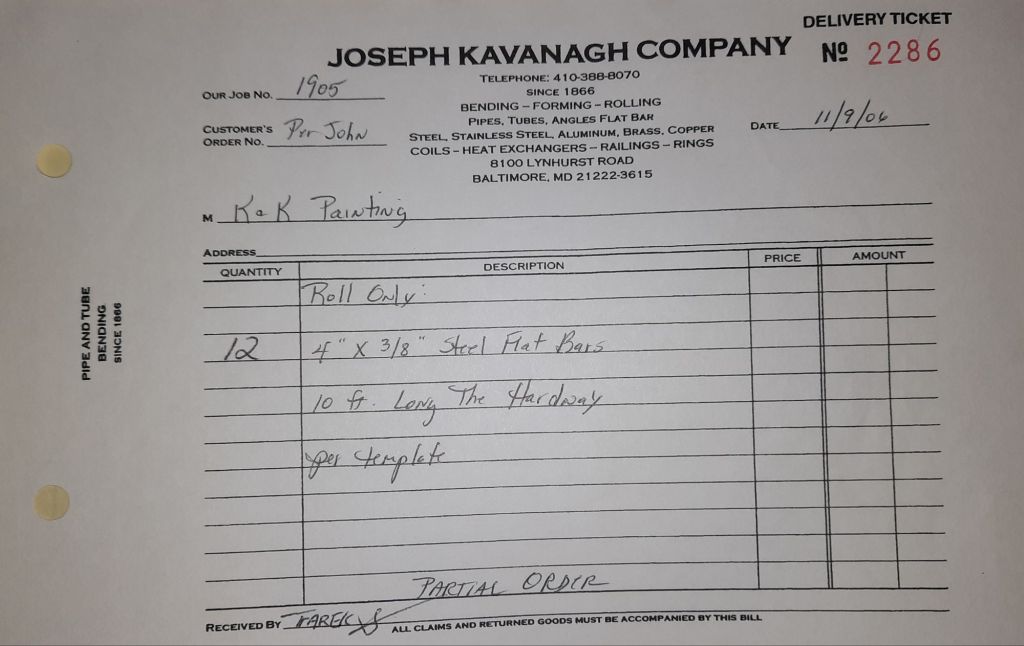 DELIVERY TICKET
JOSEPH KAVANAGH COMPANY
№ 2286
TELEPHONE: 410-388-8070
SINCE 1866
BENDING – FORMING – ROLLING
PIPES, TUBES, ANGLES FLAT BAR
STEEL, STAINLESS STEEL, ALUMINUM, BRASS, COPPER
COILS – HEAT EXCHANGERS – RAILINGS – RINGS
8100 LYNHURST ROAD
BALTIMORE, MD 21222-3615
OUR JOB NO. 1905
CUSTOMER'S ORDER NO. Per John
DATE 11/9/06
M K & K Painting
ADDRESS
QUANTITY DESCRIPTION PRICE AMOUNT
Roll Only:
12 4" X 3/8" Steel Flat Bars
10 ft. Long The Hardway
per template
PARTIAL ORDER
RECEIVED BY TAREK
ALL CLAIMS AND RETURNED GOODS MUST BE ACCOMPANIED BY THIS BILL
PIPE AND TUBE
BENDING
SINCE 1866